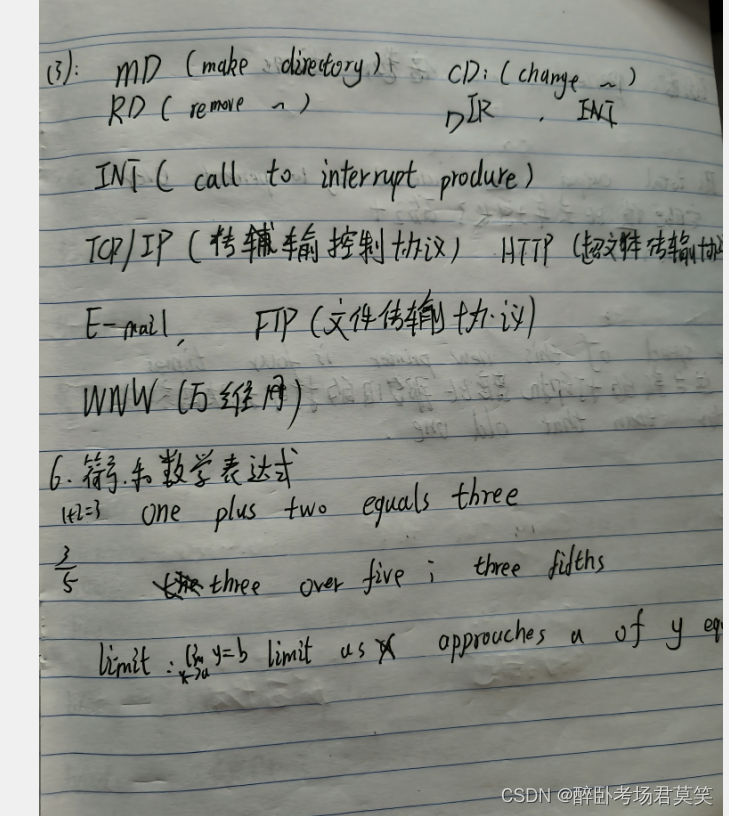 (3): MD (make directory) CD: (change ~)
RD ( remove ~ ) DIR . INT
INT ( call to interrupt produre)
TCP/IP (传辅输控制协议) HTTP (超文件传输协议
E-mail, FTP (文件传输协议)
WNW (万维网)
6. 符号和数学表达式
1+2=3 one plus two equals three
3/5 three over five ; three fidths
limit : lim x→a y=b limit as x approuches a of y equ
CSDN @醉卧考场君莫笑